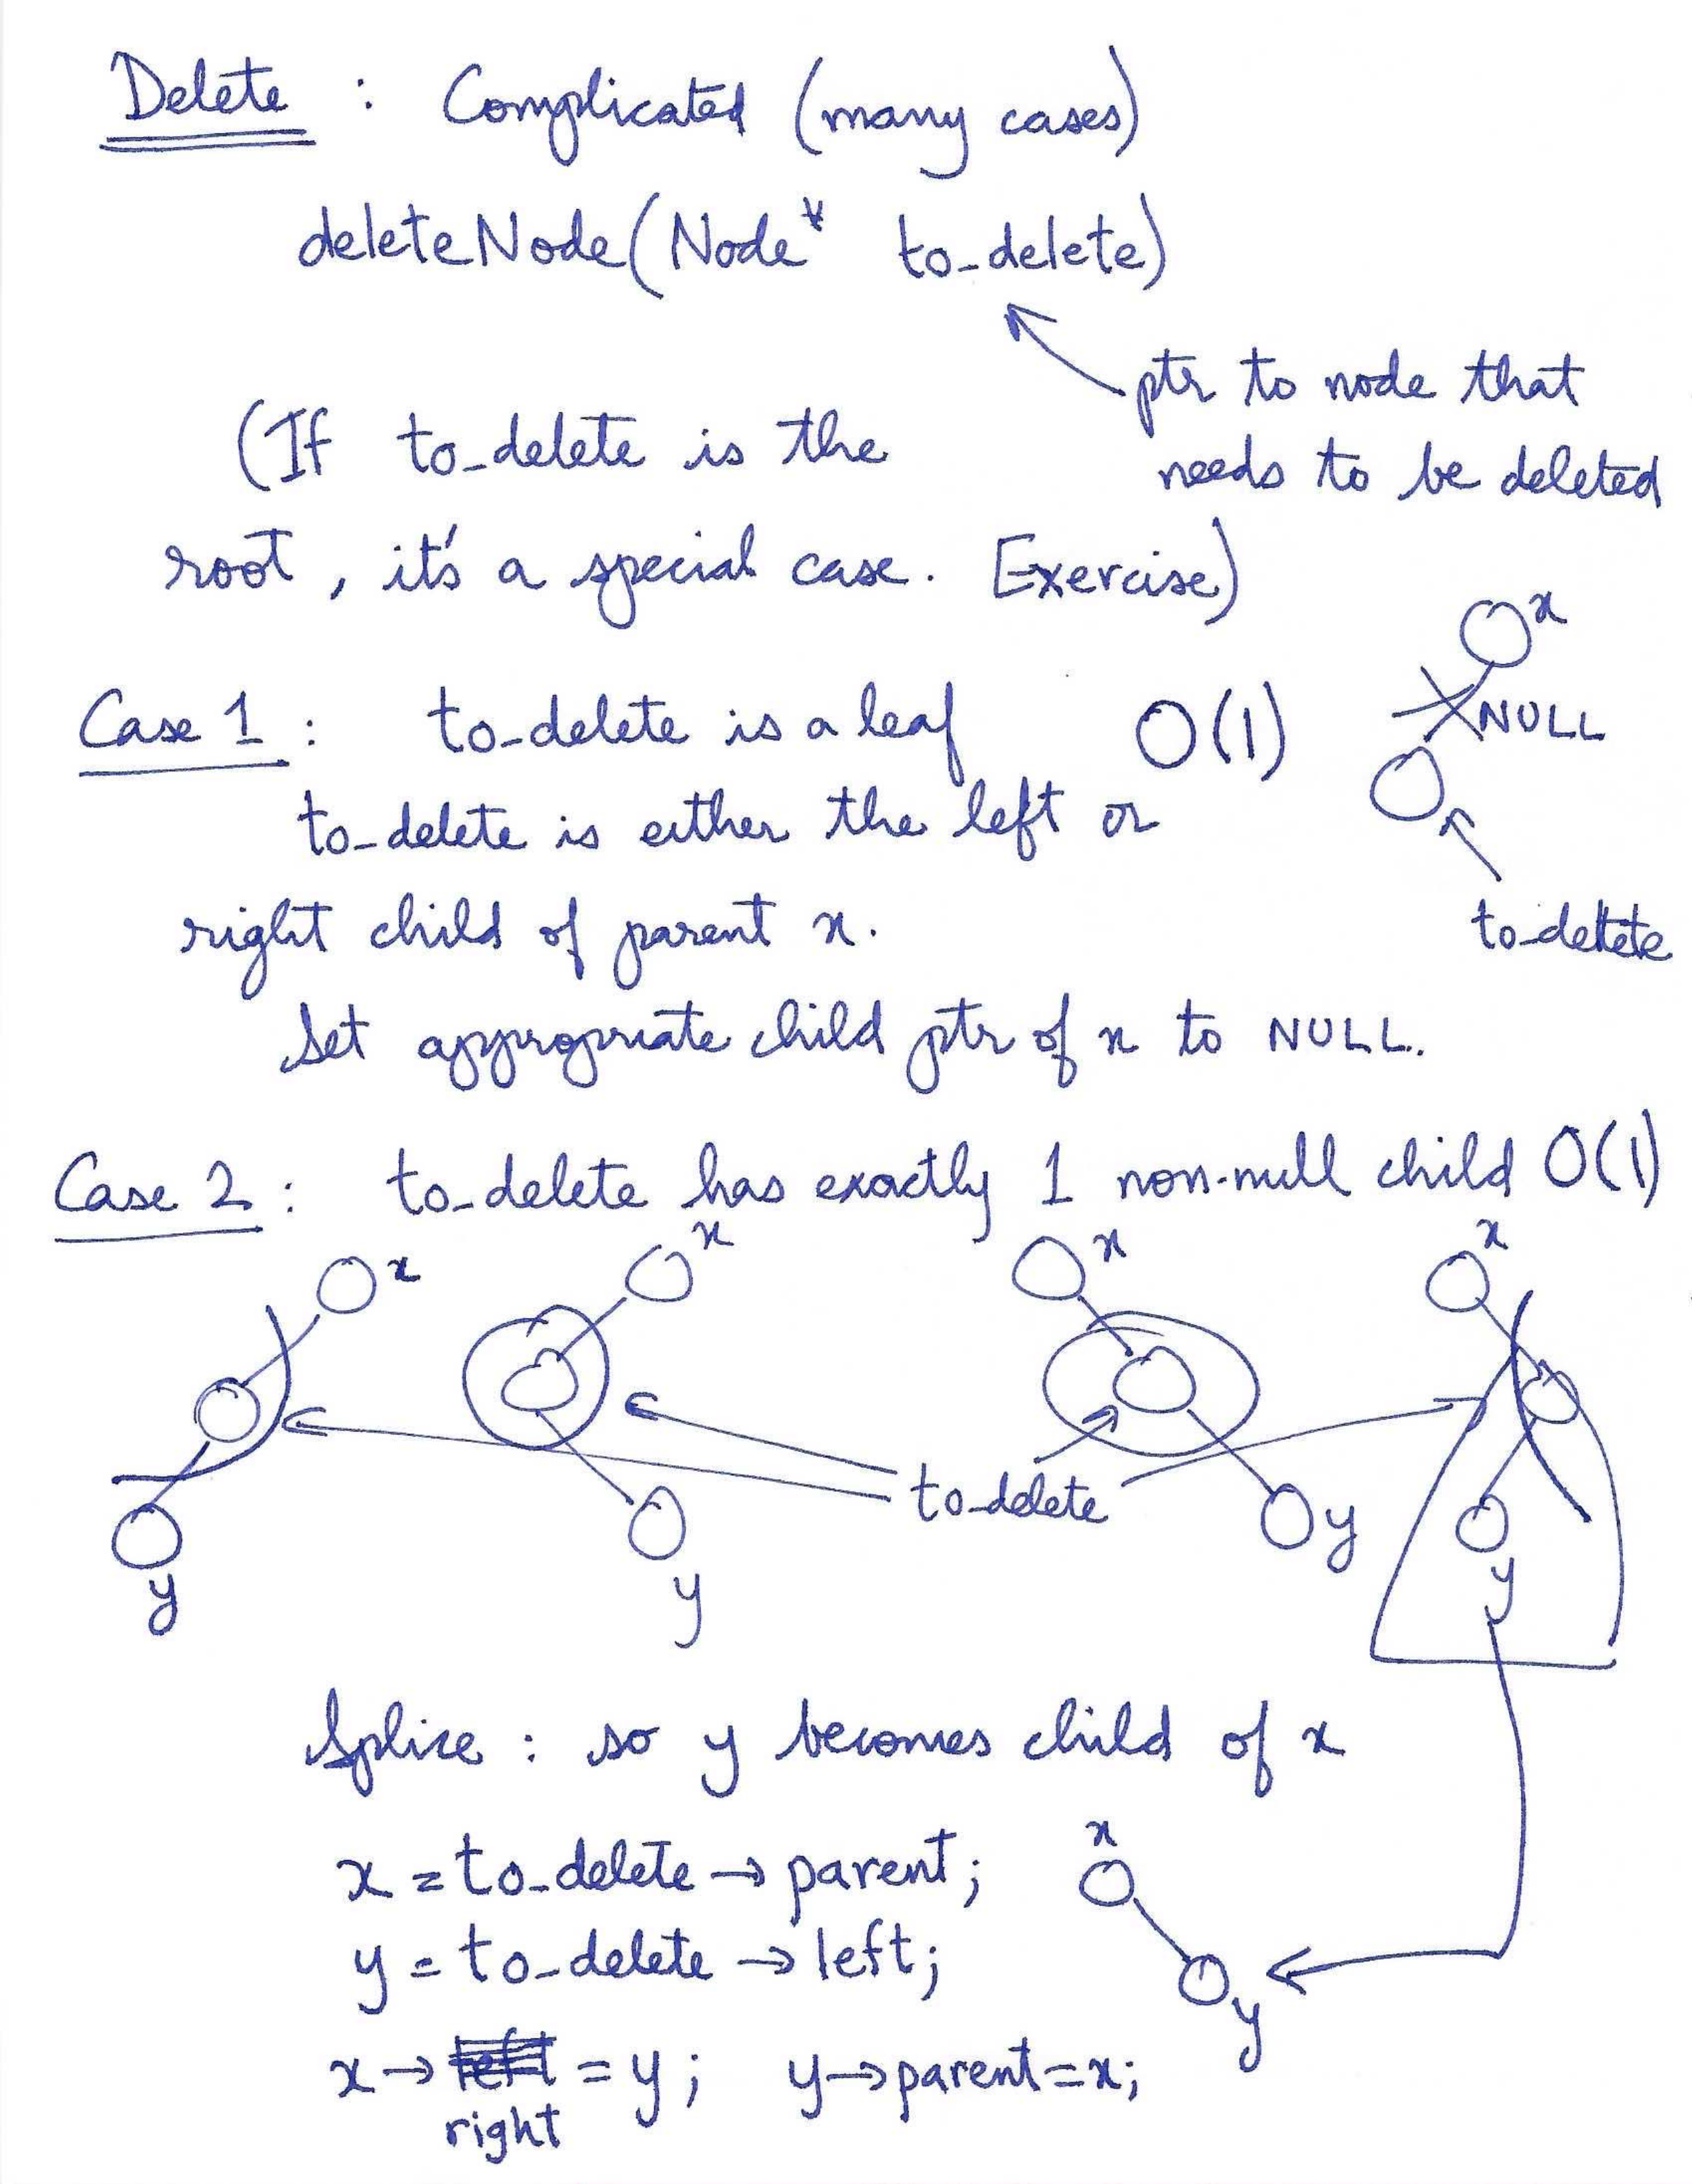 Delete : Complicated (many cases)
deleteNode(Node* to_delete)
ptr to node that
needs to be deleted
(If to_delete is the
root, it's a special case. Exercise)
Case 1 : to_delete is a leaf O(1)
x
NULL
to_delete
to_delete is either the left or
right child of parent x.
Set appropriate child ptr of x to NULL.
Case 2 : to_delete has exactly 1 non-null child O(1)
x x x x
to_delete
y y y y
Splice : so y becomes child of x
x = to_delete → parent;
y = to_delete → left;
x
y
x → left = y; y → parent = x;
right